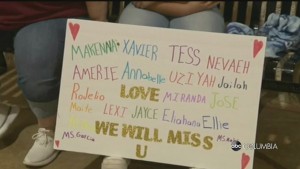 MAKENNA XAVIER TESS NEVAEH
AMERIE Annabelle UZIYAH Jailah
Rojelio LOVE MIRANDA JOSE
Maite LEXI JAYCE Eliahana Ellie
WE WILL MISS
MS. Garcia U
abc COLUMBIA